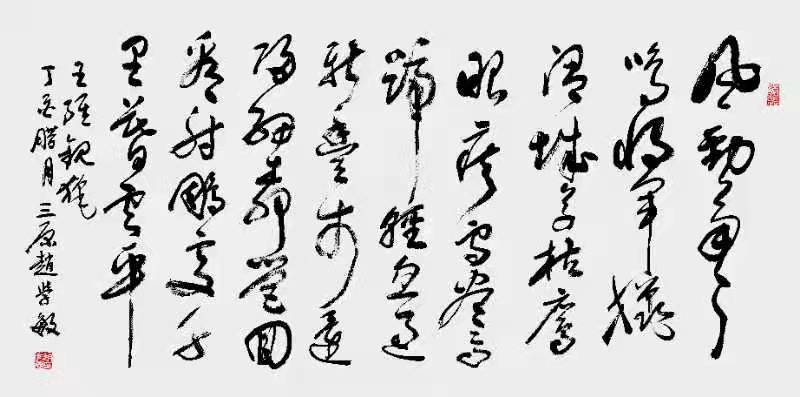 風勁角弓
鳴將軍獵
渭城草枯鷹
眼疾雪盡馬
蹄輕忽過
新豐市還
歸細柳營回
看射鵰處千
里暮雲平
王維觀獵
丁酉腊月三原趙學敏